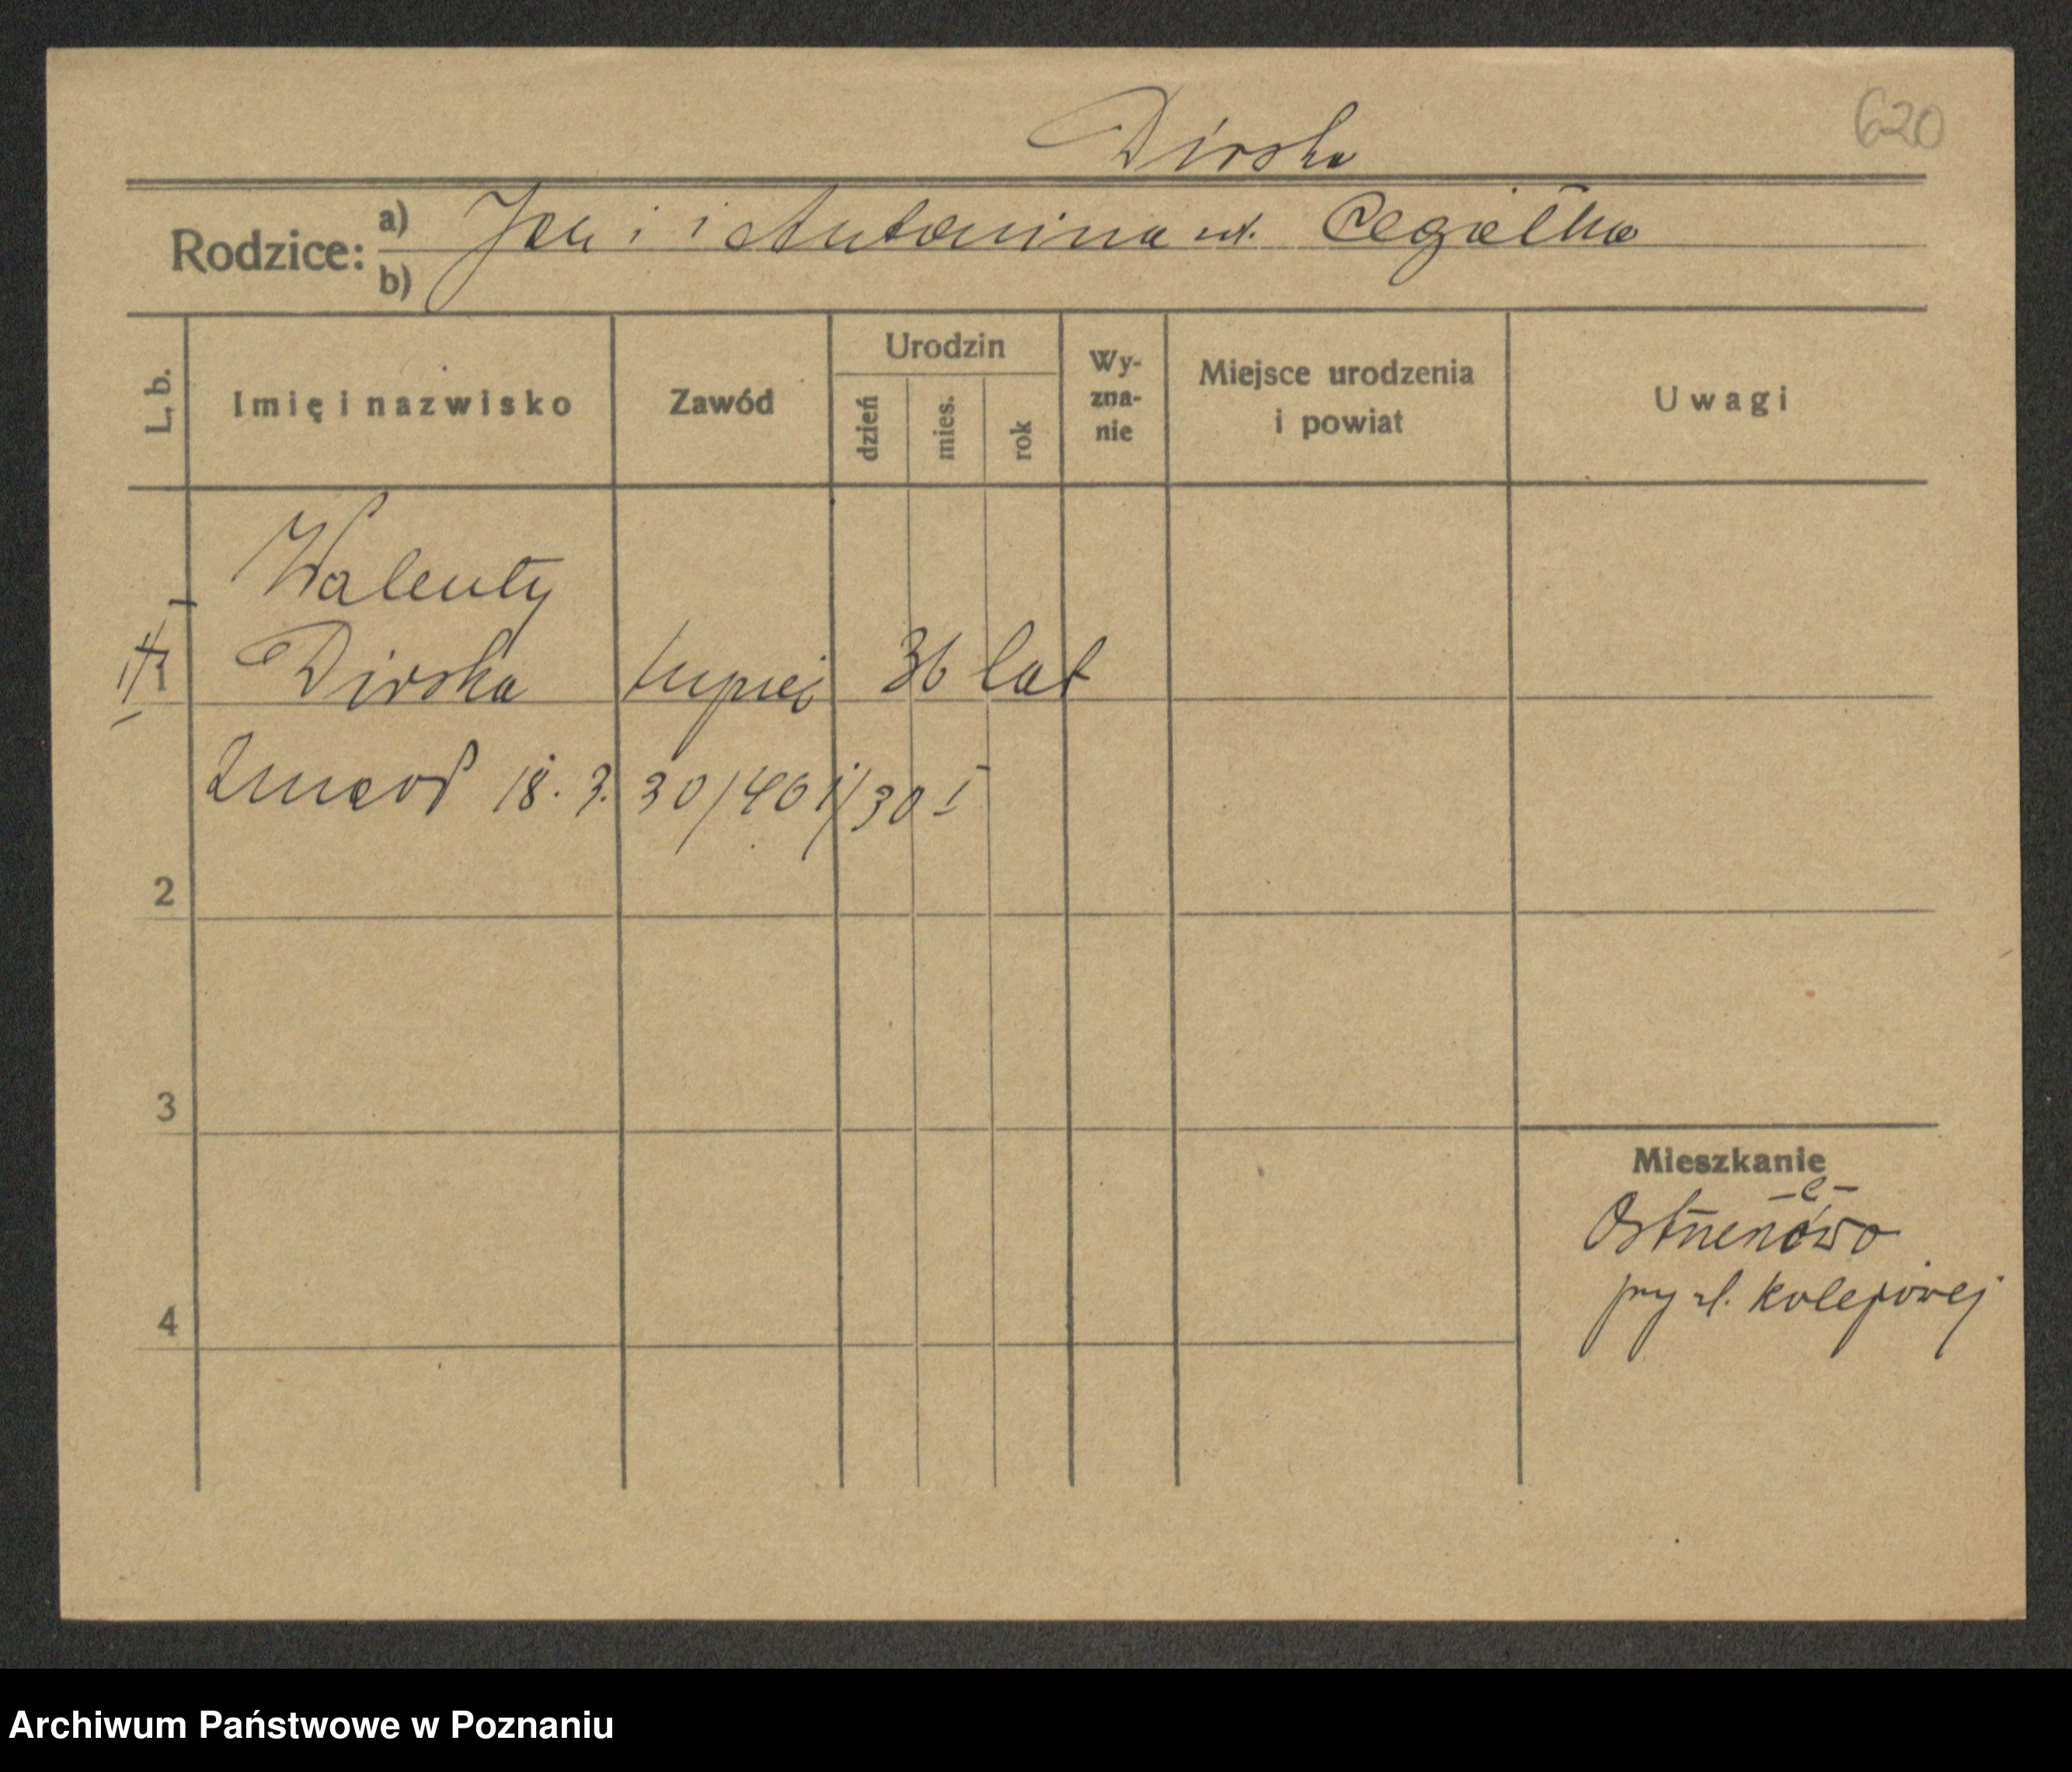 620
Dirska
Rodzice: a) Jan i Antonina ur. Cegiełka
b)
L. b. Imię i nazwisko Zawód Urodzin dzień mies. rok Wy-zna-nie Miejsce urodzenia i powiat Uwagi
Walenty
1 Dirska kupiec 36 lat
Zmarł 18. 3. 30/401/30 I
2
3
Mieszkanie
pry ul. Kolejowej
4
Archiwum Państwowe w Poznaniu